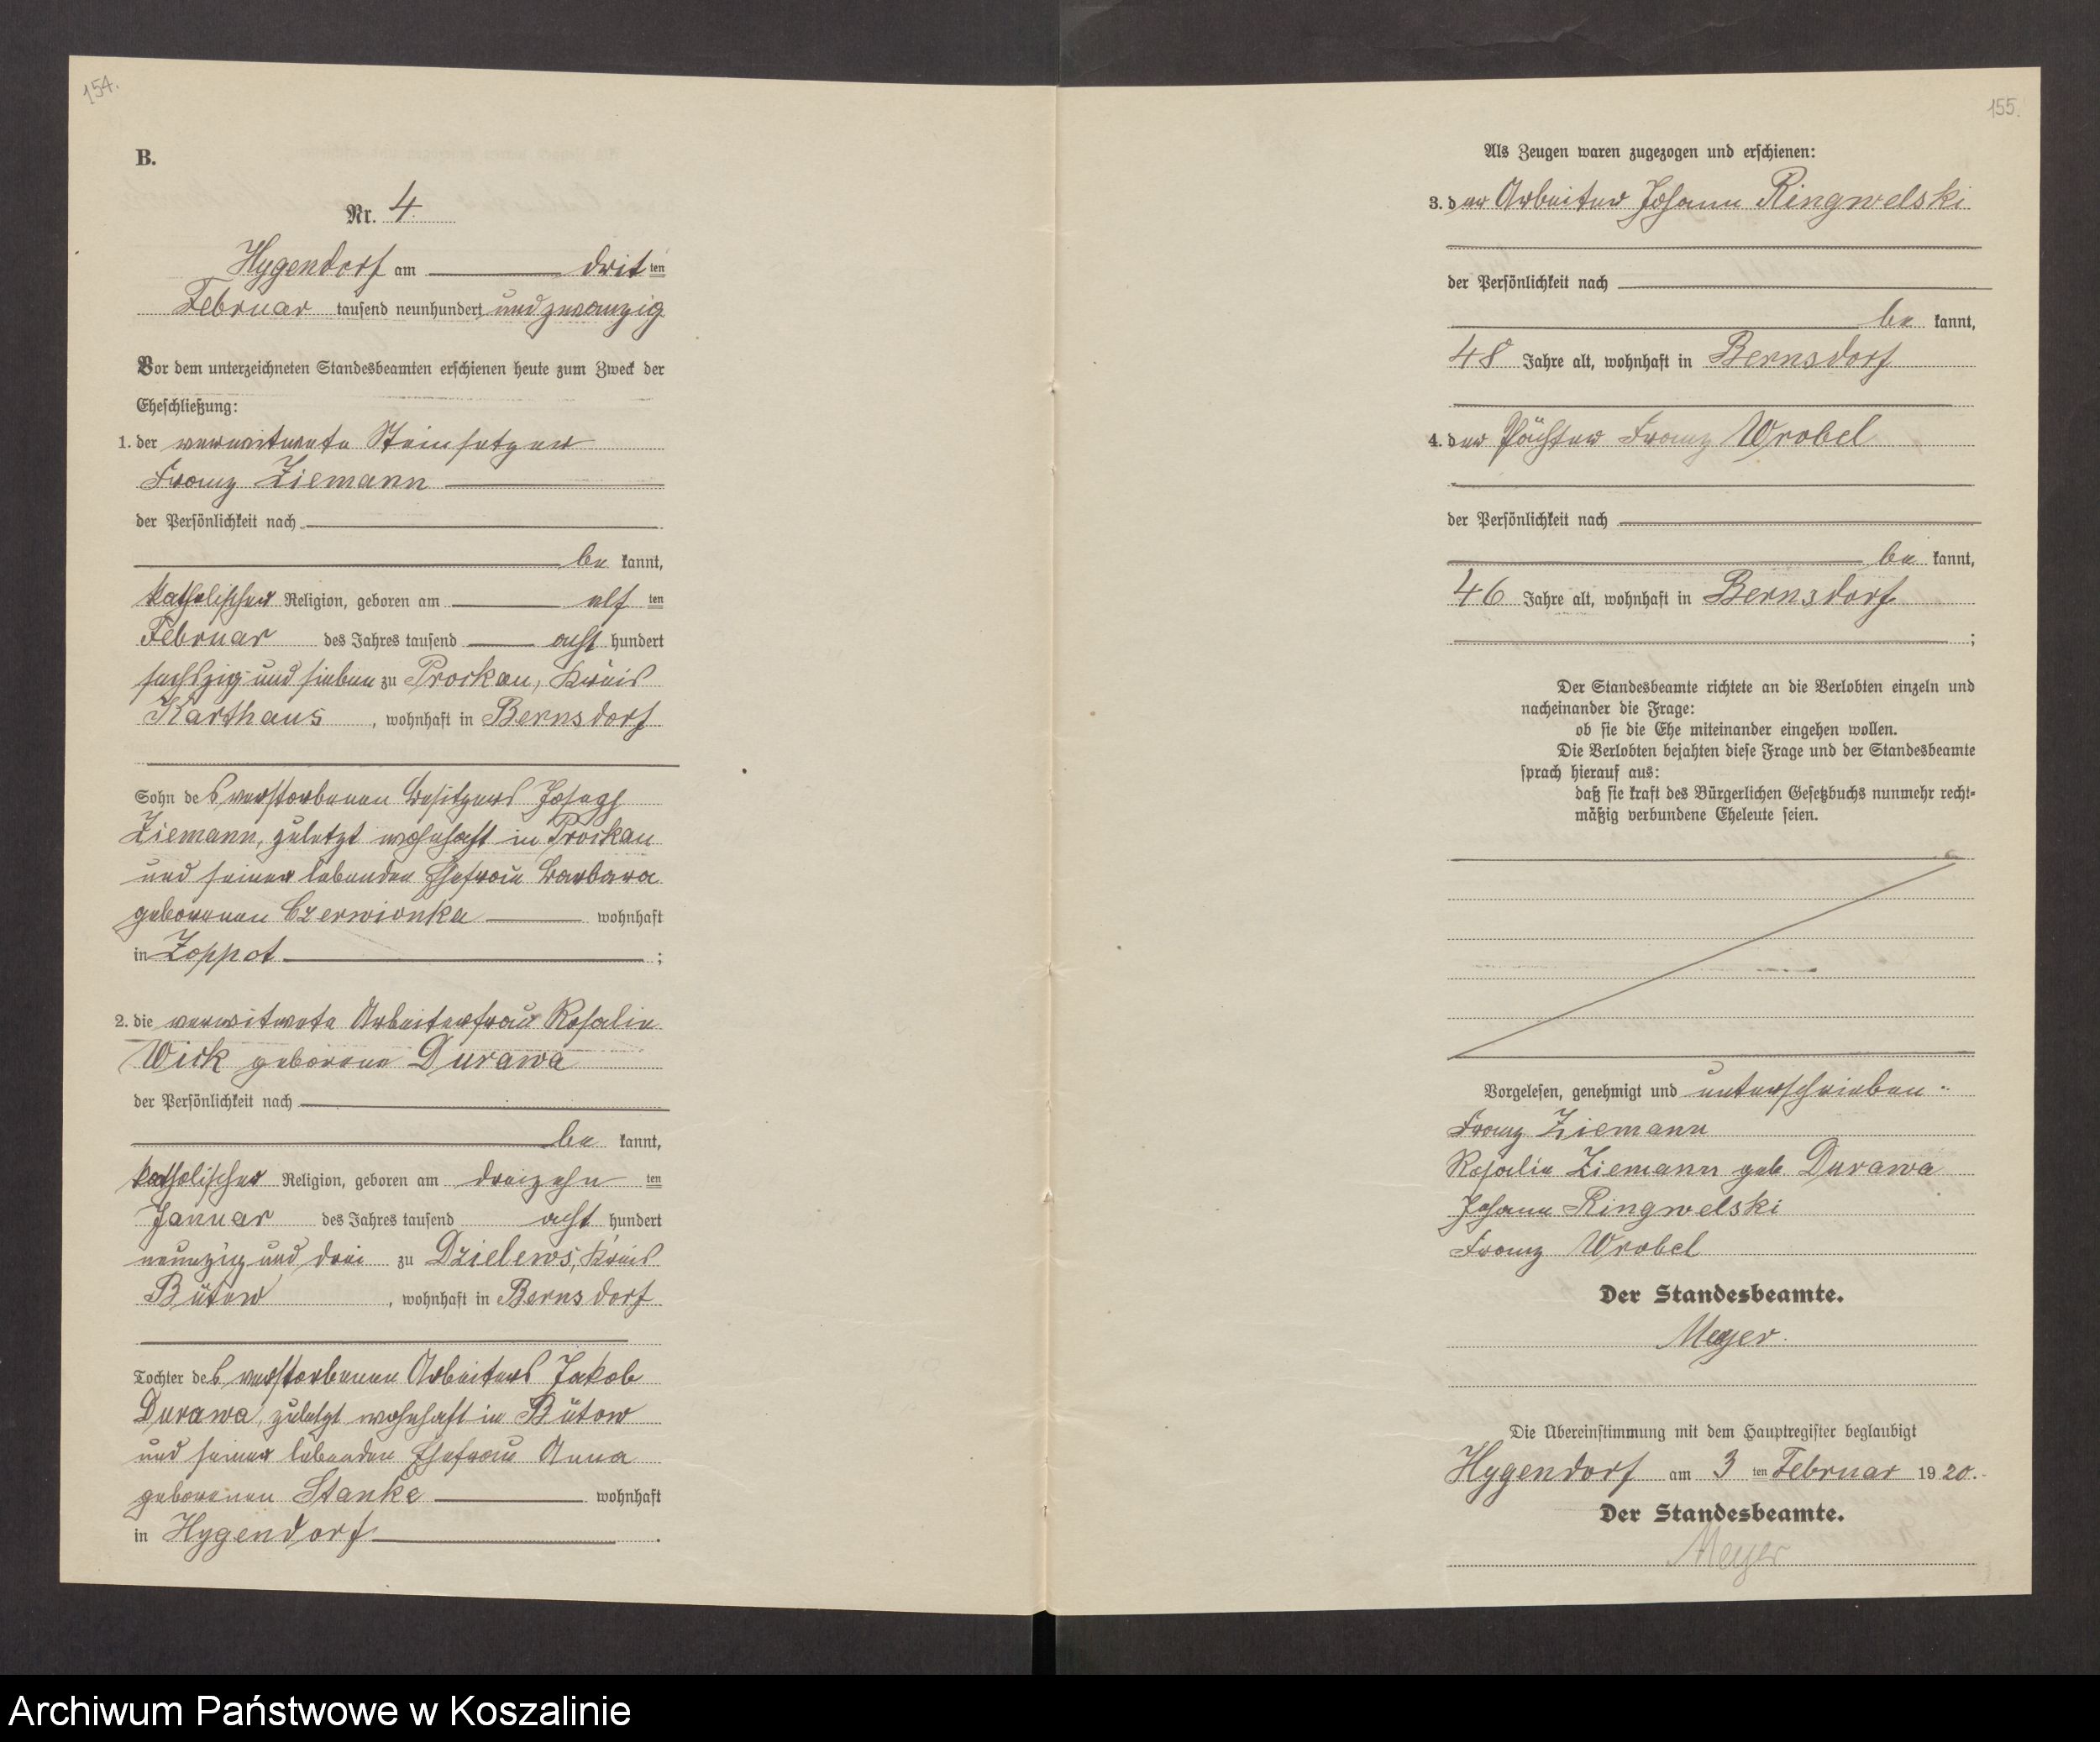 154.
B.
Nr. 4.
Hygendorf am drit ten
Februar tausend neunhundert und zwanzig
Vor dem unterzeichneten Standesbeamten erschienen heute zum Zweck der
Eheschließung:
1. der verwitwete Steinsetzer
Franz Ziemann
der Persönlichkeit nach
be kannt,
katholischer Religion, geboren am elf ten
Februar des Jahres tausend acht hundert
sechszig und sieben zu Prockau, Kreis
Karthaus, wohnhaft in Bernsdorf
Sohn des verstorbenen Besitzers Joseph
Ziemann, zuletzt wohnhaft in Prockau
und seiner lebenden Ehefrau Barbara
geborenen Czerwionka wohnhaft
in Zoppot ;
2. die verwitwete Arbeiterfrau Rosalie
Wick geborene Durawa
der Persönlichkeit nach
be kannt,
katholischer Religion, geboren am dreizehn ten
Januar des Jahres tausend acht hundert
neunzig und drei zu Dzielews, Kreis
Bütow, wohnhaft in Bernsdorf
Tochter des verstorbenen Arbeiters Jakob
Durawa, zuletzt wohnhaft in Bütow
und seiner lebenden Ehefrau Anna
geborenen Stanke wohnhaft
in Hygendorf .
155.
Als Zeugen waren zugezogen und erschienen:
3. der Arbeiter Johann Ringwelski
der Persönlichkeit nach
be kannt,
48 Jahre alt, wohnhaft in Bernsdorf
4. der Pächter Franz Wrobel
der Persönlichkeit nach
be kannt,
46 Jahre alt, wohnhaft in Bernsdorf
;
Der Standesbeamte richtete an die Verlobten einzeln und
nacheinander die Frage:
ob sie die Ehe miteinander eingehen wollen.
Die Verlobten bejahten diese Frage und der Standesbeamte
sprach hierauf aus:
daß sie kraft des Bürgerlichen Gesetzbuchs nunmehr recht-
mäßig verbundene Eheleute seien.
Vorgelesen, genehmigt und unterschrieben:
Franz Ziemann
Rosalie Ziemann geb Durawa
Johann Ringwelski
Franz Wrobel
Der Standesbeamte.
Meyer.
Die Übereinstimmung mit dem Hauptregister beglaubigt
Hygendorf am 3 ten Februar 1920.
Der Standesbeamte.
Meyer
Archiwum Państwowe w Koszalinie